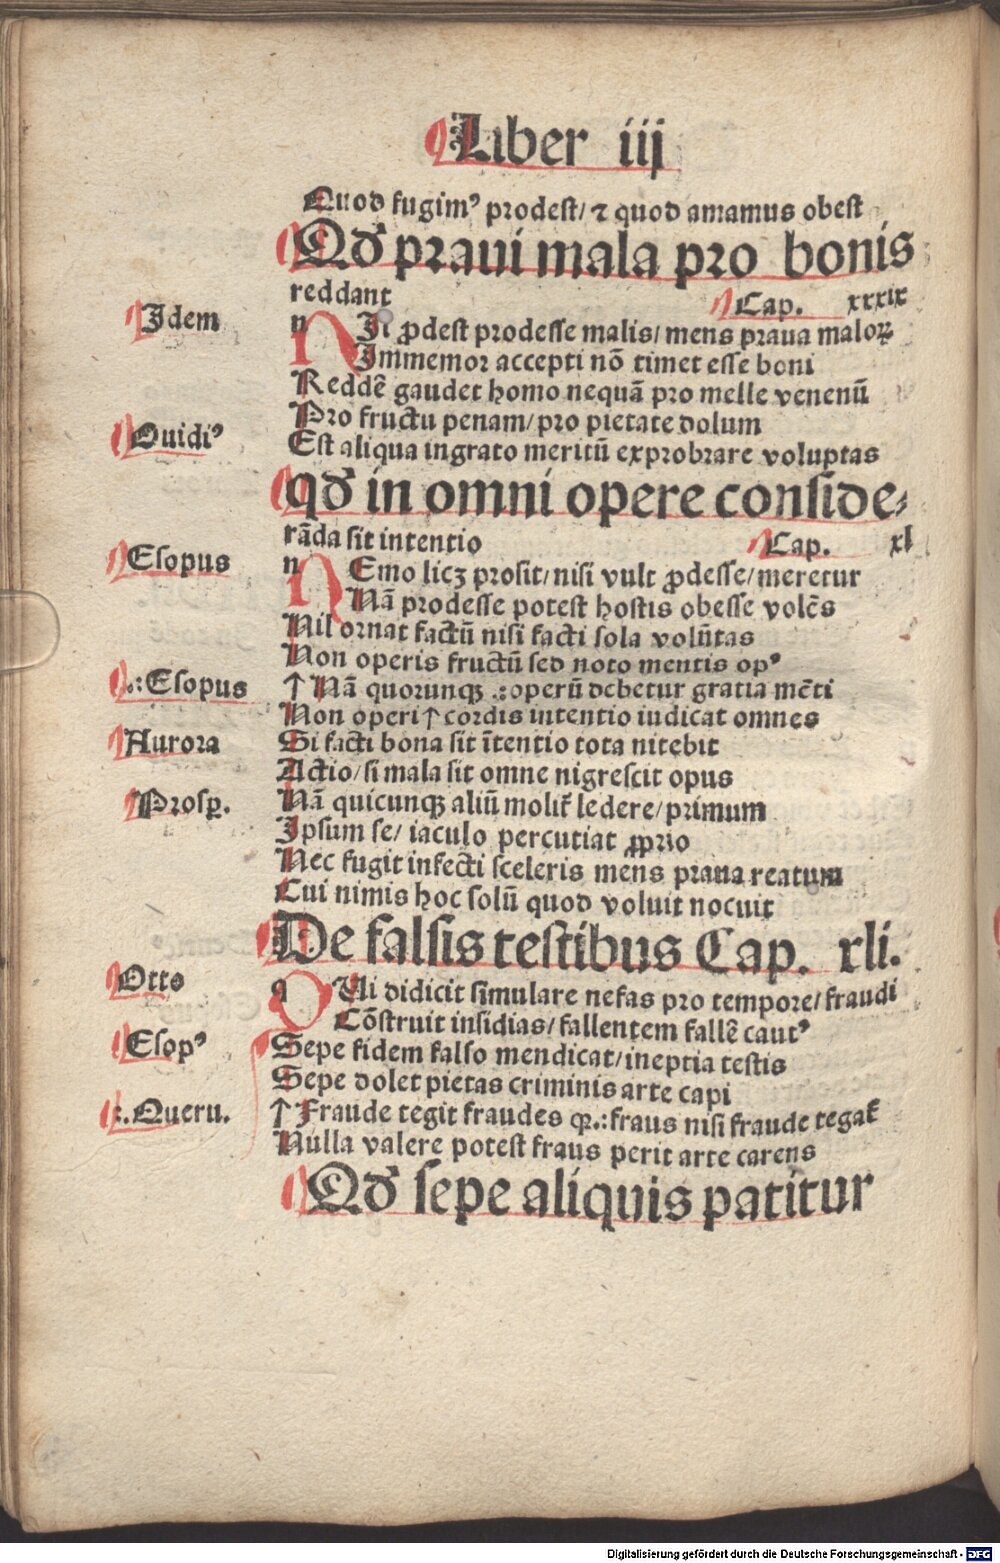 Liber iii
Quod fugimꝰ prodest/ ⁊ quod amamus obest
Qď praui mala pro bonis
reddant Cap. xxxix
Idem
n Il ꝓdest prodesse malis/ mens praua maloꝝ
Immemor accepti nō timet esse boni
Reddē gaudet homo nequā pro melle venenū
Pro fructu penam/ pro pietate dolum
Ouidiꝰ
Est aliqua ingrato meritū exprobrare voluptas
qď in omni opere conside⸗
rāda sit intentio Cap. xl
Esopus
n Emo licꝫ prosit/ nisi vult ꝓdesse/ meretur
Nā prodesse potest hostis obesse volēs
Nil ornat factū nisi facti sola volūtas
Non operis fructū sed noto mentis opꝰ
.:Esopus
↑ Nā quorunqꝫ .:operū debetur gratia mēti
Non operi↑cordis intentio iudicat omnes
Aurora
Si facti bona sit ītentio tota nitebit
Actio/ si mala sit omne nigrescit opus
Prosꝑ.
Nā quicunqꝫ aliū molit̃ ledere/ primum
Ipsum se/ iaculo percutiat ꝓprio
Nec fugit infecti sceleris mens praua reatum
Cui nimis hoc solū quod voluit nocuit
De falsis testibus Cap. xli.
Otto
q Ui didicit simulare nefas pro tempore/ fraudi
Cōstruit insidias/ fallentem fallē cautꝰ
Esopꝰ
Sepe fidem falso mendicat/ ineptia testis
Sepe dolet pietas criminis arte capi
:.Queru.
↑Fraude tegit fraudes qꝛ.:fraus nisi fraude tegat̃
Nulla valere potest fraus perit arte carens
Qď sepe aliquis patitur
Digitalisierung gefördert durch die Deutsche Forschungsgemeinschaft - DFG